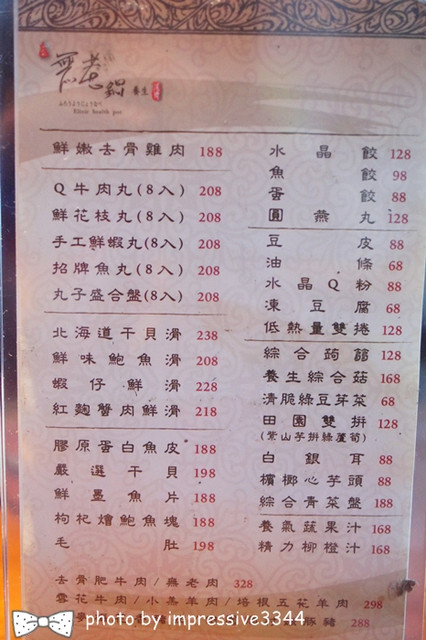 無老鍋 養生
ふろうふじゅうなべ
Klinic health pot
鮮嫩去骨雞肉 188
Q牛肉丸(8入) 208
鮮花枝丸(8入) 208
手工鮮蝦丸(8入) 208
招牌魚丸(8入) 208
丸子盛合盤(8入) 208
北海道干貝滑 238
鮮味鮑魚滑 208
蝦仔鮮滑 228
紅麴蟹肉鮮滑 218
膠原蛋白魚皮 188
嚴選干貝 198
鮮墨魚片 188
枸杞燴鮑魚塊 188
毛肚 198
水晶餃 128
魚餃 98
蛋餃 88
圓燕丸 128
豆皮 88
油條 68
水晶Q粉 88
凍豆腐 68
低熱量雙捲 128
綜合蒟蒻 128
養生綜合菇 168
清脆綠豆芽菜 68
田園雙拼 128
(紫山芋拼綠蘆筍)
白銀耳 88
檳榔心芋頭 88
綜合青菜盤 188
養氣蔬果汁 168
精力柳橙汁 168
去骨肥牛肉/無老肉 328
雪花牛肉/小羔羊肉/培根五花羊肉 298
豚豬 288
photo by impressive3344